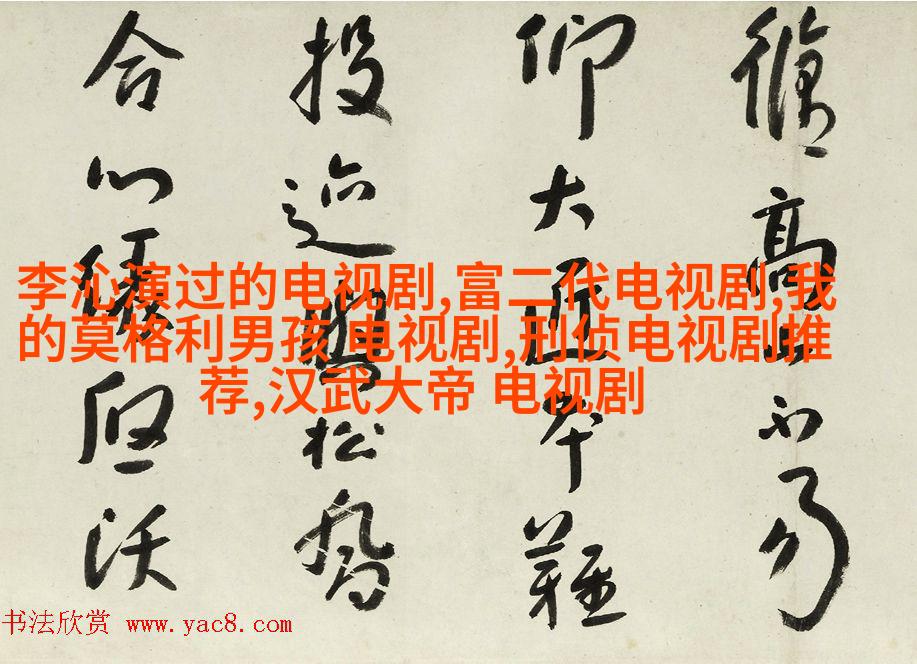 高不易
仰大本難
投迹松
合心沃
李沁演过的电视剧,富二代电视剧,我
的莫格利男孩 电视剧,刑侦电视剧推
荐,汉武大帝 电视剧
书法欣赏 www.yac8.com